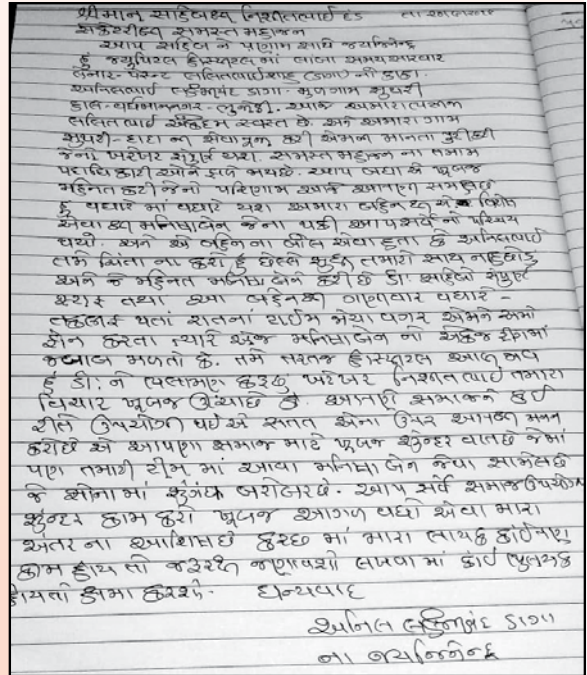 શ્રીમાન સાહેબશ્રી નિશીતભાઈ
સેક્રેટરીશ્રી સમસ્ત મહાજન
આપ સાહેબ ને પ્રણામ સાથે જયજિનેન્દ્ર
હું જ્યુપિટલ હોસ્પીટલમાં લાંબા સમય સારવાર
લેનાર - પેસન્ટ લલિતભાઈ શાહુ (ડાગા) ની કાકા.
અનિલભાઈ લક્ષ્મીચંદ ડાગા - મુળગામ સુથરી
હાલ - વર્ધમાનનગર - ભુજોડી. આજ અમારા
લલિતભાઈ એકદમ સ્વસ્થ છે. અને અમારા ગામ
સુથરી - કરી એમની માનતા પુરી કરી
જેનો ખરેખર સંપુર્ણ યશ. સમસ્ત મહાજન ના તમામ
પદાધિકારી ઓને ફાળે જાય છે. આપ બધા એ ખુબજ
મહેનત કરી જેનો પરિણામ આજે આપણી સમક્ષ છે
હું વધારે માં વધારે યશ અમારા બહેન
એવા મનિષાબેન જેના થકી આપ સર્વે નો પરિચય
થયો. અને એ બહેન ના બોલ એવા હતા કે અનિલભાઈ
તમે ચિંતા ના કરો હું છેલ્લે સુધી તમારો સાથ ના છોડુ
અને જે મહેનત મનિષા બેને કરી છે ડો. સાહેબો સંપુર્ણ
સ્ટાફ તથા આ બહેનશ્રી ગણાવાર વધારે -
તકલીફ થતાં રાતનાં ટાઈમ જોયા વગર એમને અમો
ફોન કરતા ત્યારે એજ મનિષા બેન નો એકજ રીંગમાં
જવાબ મળતો કે. તમે તરતજ હોસ્પીટલ આવી જાવ
હું ડો: ને ભલામણ કરૂછું ખરેખર નિશીતભાઈ તમારા
વિચાર ખુબજ ઉંચા છે કે. આપણી સમાજને કઈ
રીતે ઉપયોગી થઈએ સતત એના ઉપર આપશ્રી મનન
કરો છો એ આપણા સમાજ માટે ખુબજ સુંન્દર વાત છે જેમાં
પણ તમારી ટીમ માં આવા મનિષા બેન જેવા સામેલ છે
જે સોનામાં સુંગંધ બરોબર છે. આપ સર્વે સમાજ ઉપયોગી
સુંન્દર કામ કરો ખુબજ આગળ વધો એવા મારા
અંતર ના આશિષ છે કચ્છ માં મારા લાયક કાંઈપણ
કામ હોય તો જરૂરથી જણાવશો લખવા માં કાંઈ ભુલચુક
હોયતો ક્ષમા કરશો. ધન્યવાદ
અનિલ લક્ષ્મીચંદ ડાગા
ના જયજિનેન્દ્ર